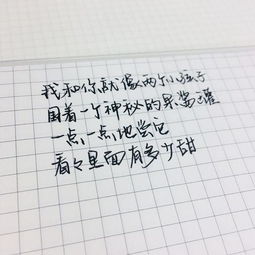 我和你就像两个小孩子
围着一个神秘的果酱罐
一点一点地尝它
看看里面有多少甜